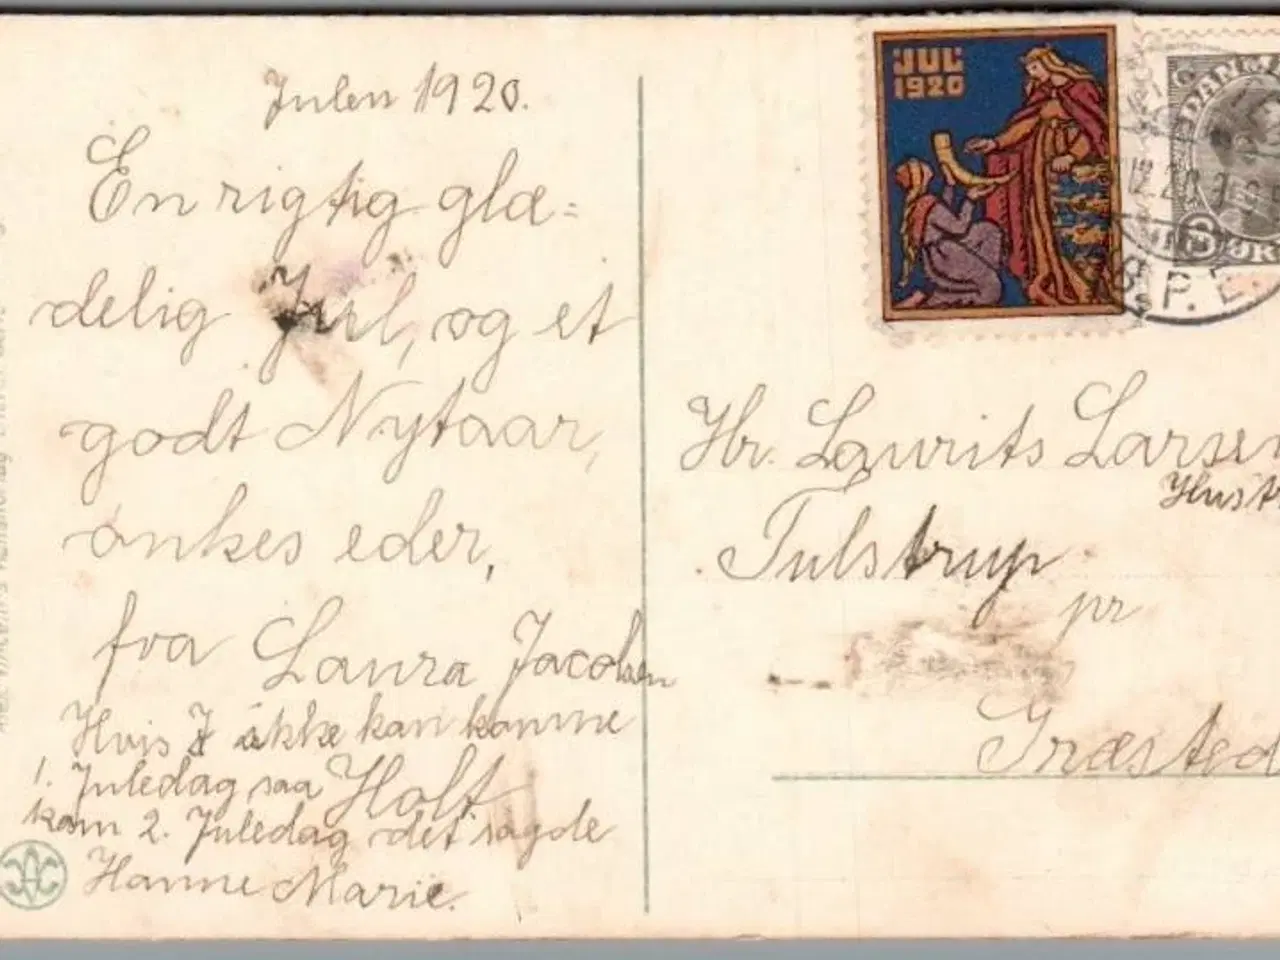 Julen 1920.
En rigtig glæ=
delig Jul, og et
godt Nytaar,
ønkes eder,
fra Laura Jacobsen
Hvis I ikke kan komme
1. Juledag saa Holt
kom 2. Juledag det sagde
Hanne Marie.
JUL
1920
DANM
ØR
12.20
Hr. Laurits Larsen
Hust
Tulstrup
pr
Græsted